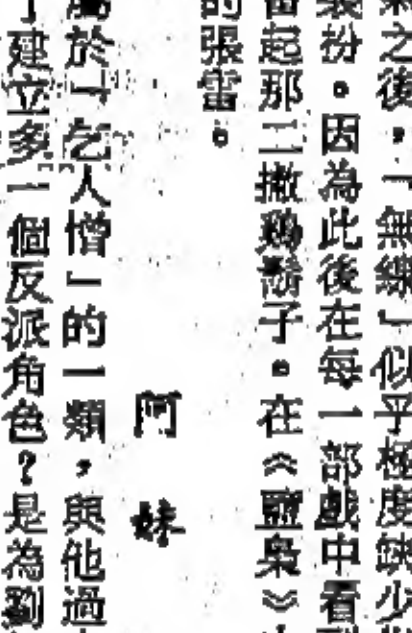 之後，「無線」似乎極度缺少
裝扮。因為此後在每一部戲中看
當起那二撇鷄鬍子。在《鹽梟》
的張雷。
阿妹
屬於「乞人憎」的一類，與他過
建立多一個反派角色？是為劉